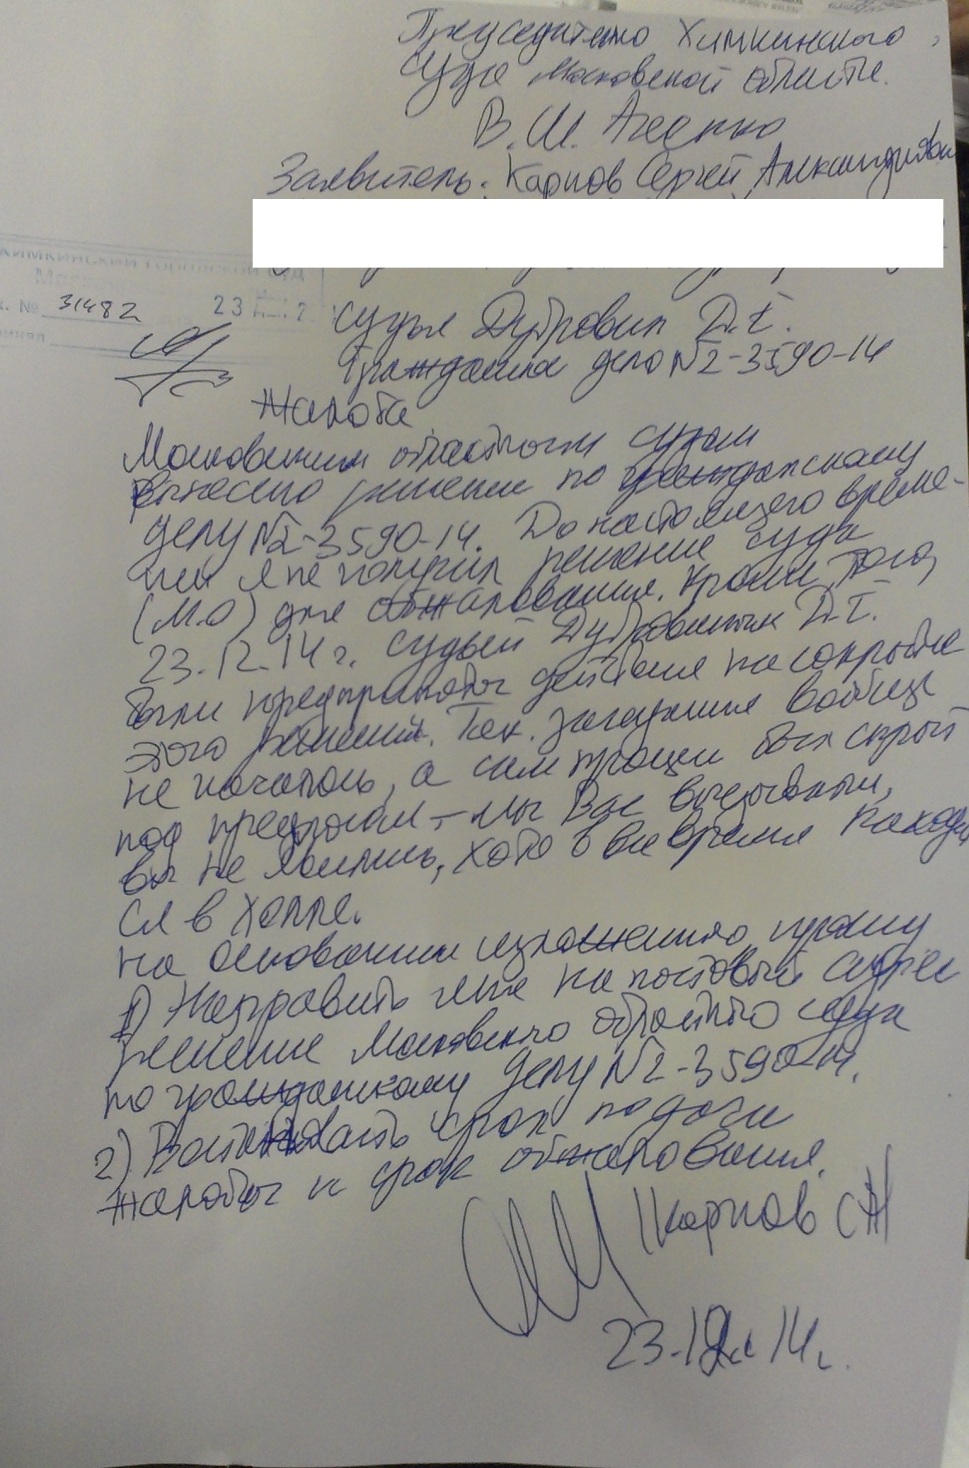 Председателю Химкинского
суда Московской области.
В. Ш.
Заявитель: Карпов Сергей Александрович
ХИМКИНСКИЙ ГОРОДСКОЙ СУД
№ 31482 23
судья Дубровин Д.Е.
Гражданское дело №2-3590-14
Жалоба
Московским областным судом
вынесено решение по гражданскому
делу №2-3590-14. До настоящего време-
ни я не получил решение суда
(М.О) для обжалования. Кроме того,
23.12.14 г. судьей Дубровиным Д.Е.
были предприняты действия на сокрытие
этого решения. Так. заседание вообще
не началось, а сам процесс был скрыт
под предлогом – мы Вас вызывали,
вы не явились, хотя я все время находил
ся в холле.
На основании изложенного прошу
1) Направить мне на почтовый адрес
решение Московского областного суда
по гражданскому делу №2-3590-14.
2) срок подачи
жалобы и срок обжалования.
/Карпов СА/
23.12.14г.